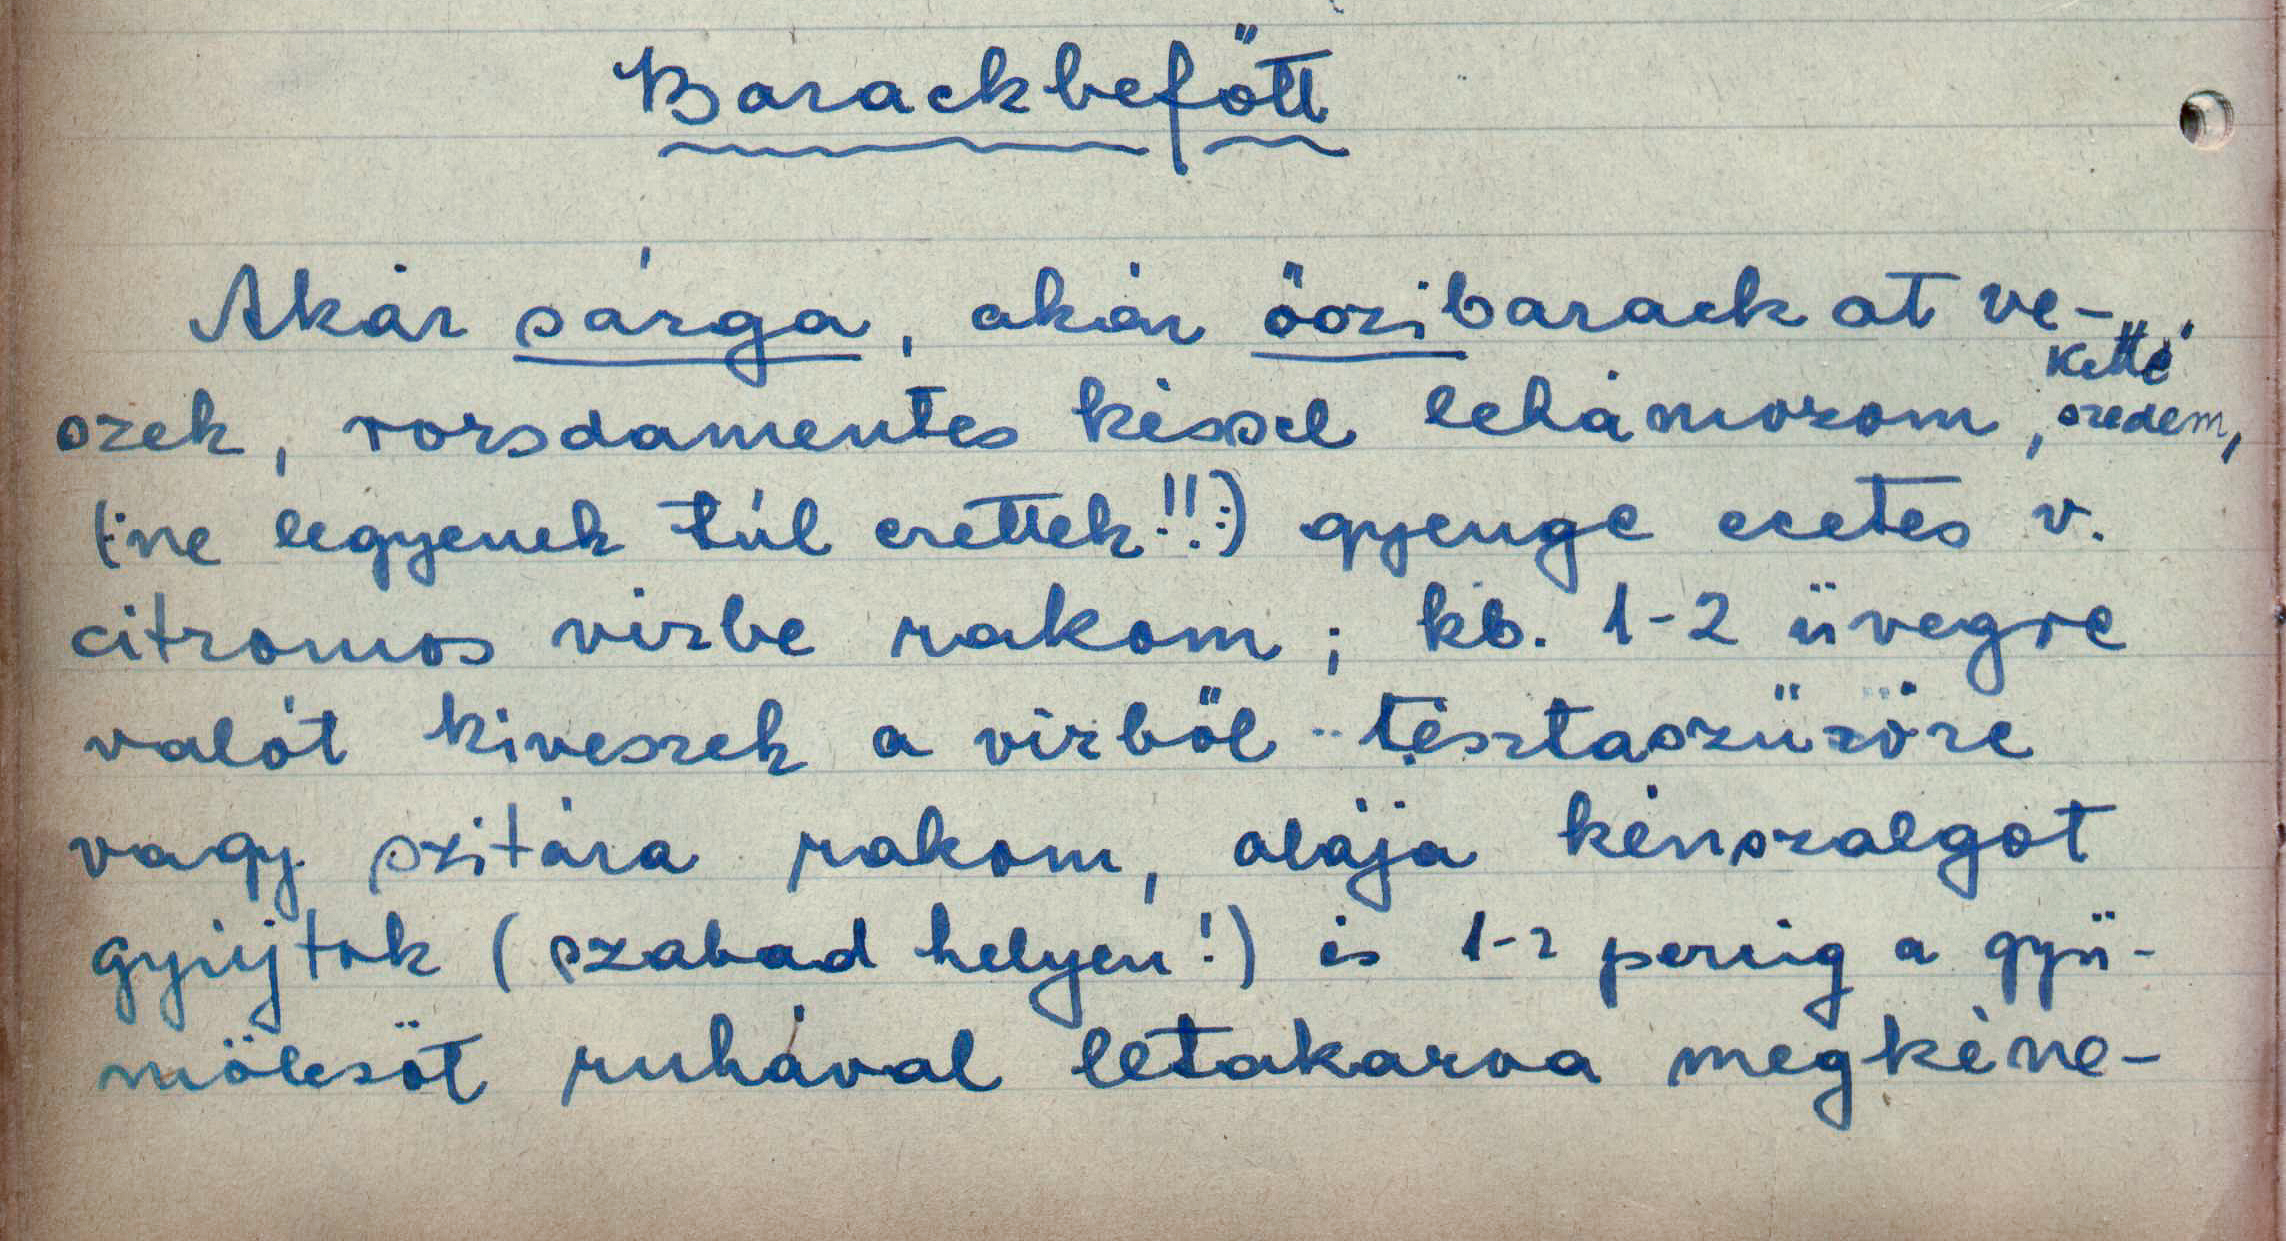 Barackbefőtt
Akár sárga, akár őszibarackat ve-
szek, rorsdamentes késsel lehámozom, ketté szedem,
(:ne legyenek túl érettek!!:) gyenge ecetes v.
citromos vízbe rakom; kb. 1-2 üvegre
valót kiveszek a vízből tésztaszűrőre
vagy szitára rakom, alája kénszalgot
gyújtok (szabad helyen!) és 1-2 percig a gyü-
mölcsöt ruhával letakarva megkéne-